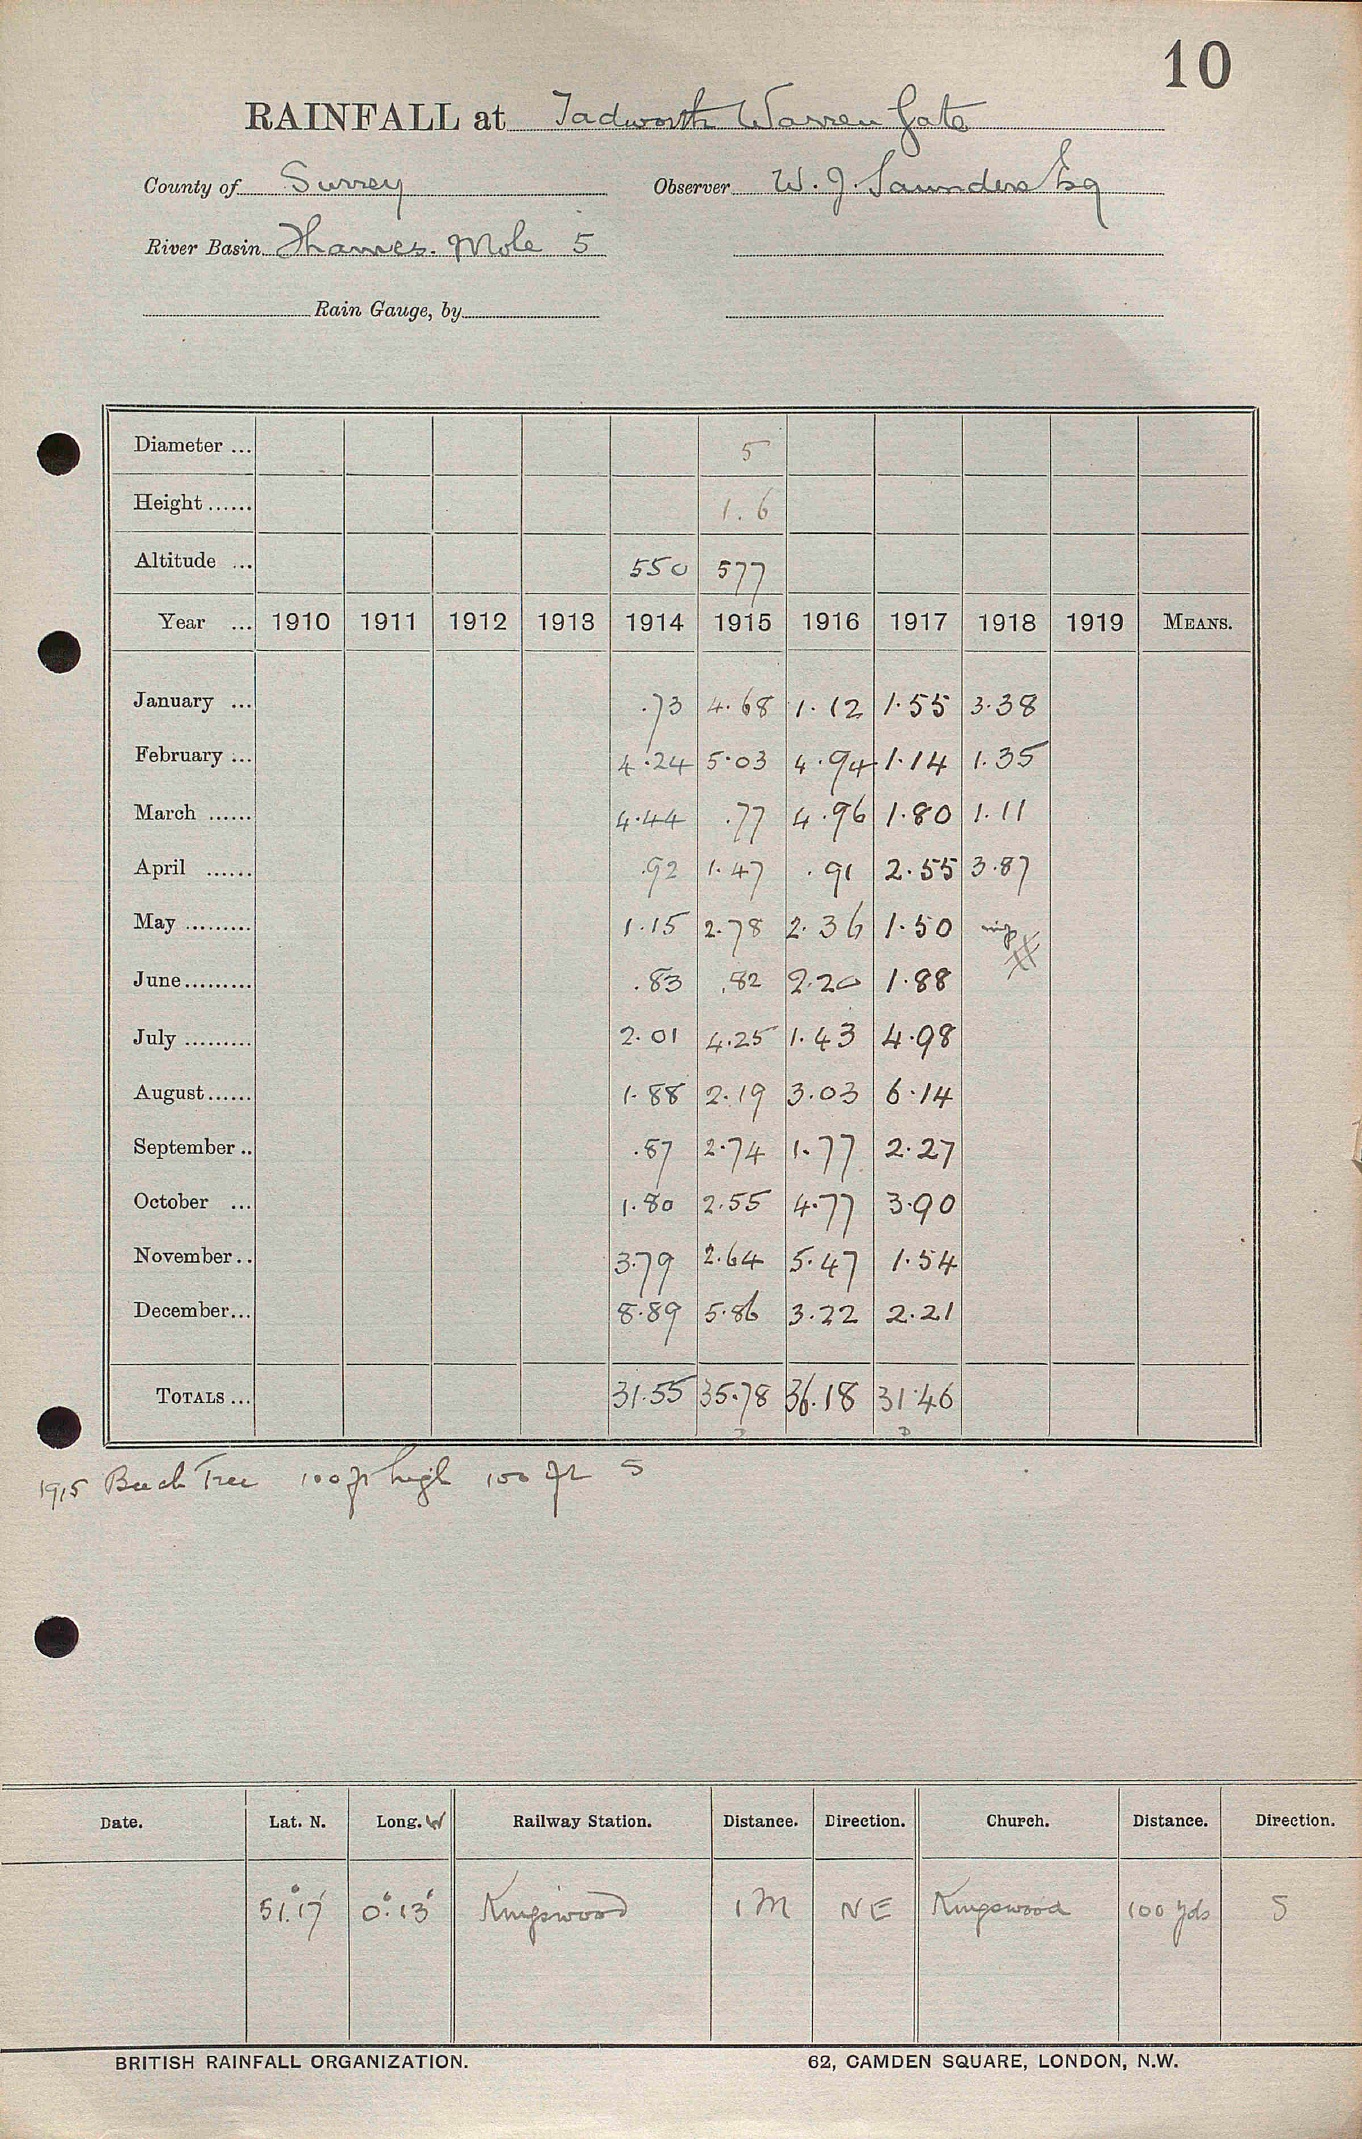 10
RAINFALL at Tadworth Warren Gate
County of Surrey Observer W. J. Saunders Esq
River Basin Thames. Mole 5
Rain Gauge, by
Diameter ... 5
Height ...... 1.6
Altitude ... 550 577
Year ... 1910 1911 1912 1913 1914 1915 1916 1917 1918 1919 MEANS.
January ... .73 4.68 1.12 1.55 3.38
February ... 4.24 5.03 4.94 1.14 1.35
March ...... 4.44 .77 4.96 1.80 1.11
April ...... .92 1.47 .91 2.55 3.87
May ......... 1.15 2.78 2.36 1.50
June ......... .83 .82 2.20 1.88
July ......... 2.01 4.25 1.43 4.98
August ...... 1.88 2.19 3.03 6.14
September .. .87 2.74 1.77 2.27
October ... 1.80 2.55 4.77 3.90
November .. 3.79 2.64 5.47 1.54
December ... 8.89 5.86 3.22 2.21
TOTALS ... 31.55 35.78 36.18 31.46
1915 Beech Tree 100 ft high 100 ft S
Date. Lat. N. Long. W Railway Station. Distance. Direction. Church. Distance. Direction.
51°.17' 0°.13' Kingswood 1 M NE Kingswood 100 yds S
BRITISH RAINFALL ORGANIZATION. 62, CAMDEN SQUARE, LONDON, N.W.